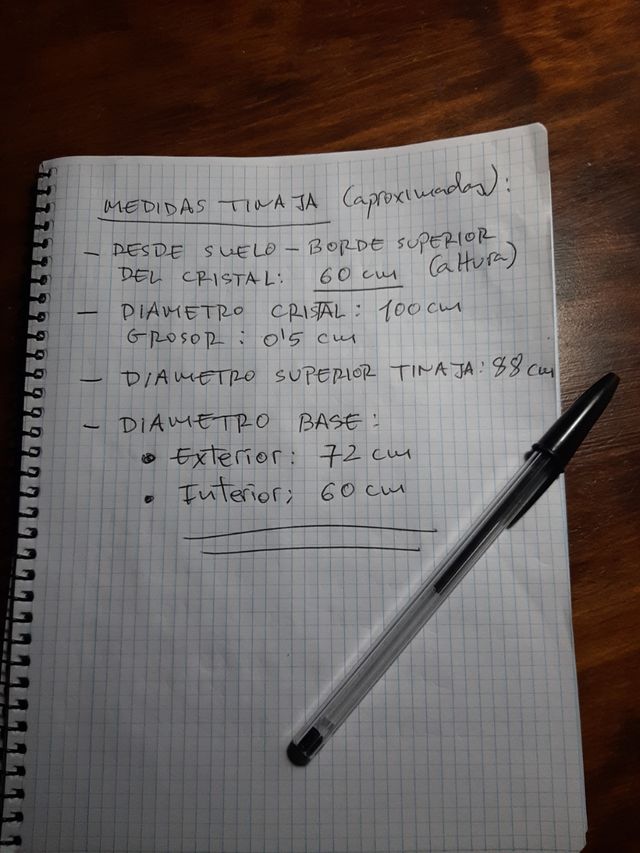 MEDIDAS TINAJA (aproximadas):
- DESDE SUELO - BORDE SUPERIOR
DEL CRISTAL: 60 cm (altura)
- DIAMETRO CRISTAL: 100 cm
GROSOR: 0'5 cm
- DIAMETRO SUPERIOR TINAJA: 88 cm
- DIAMETRO BASE:
• Exterior: 72 cm
• Interior; 60 cm